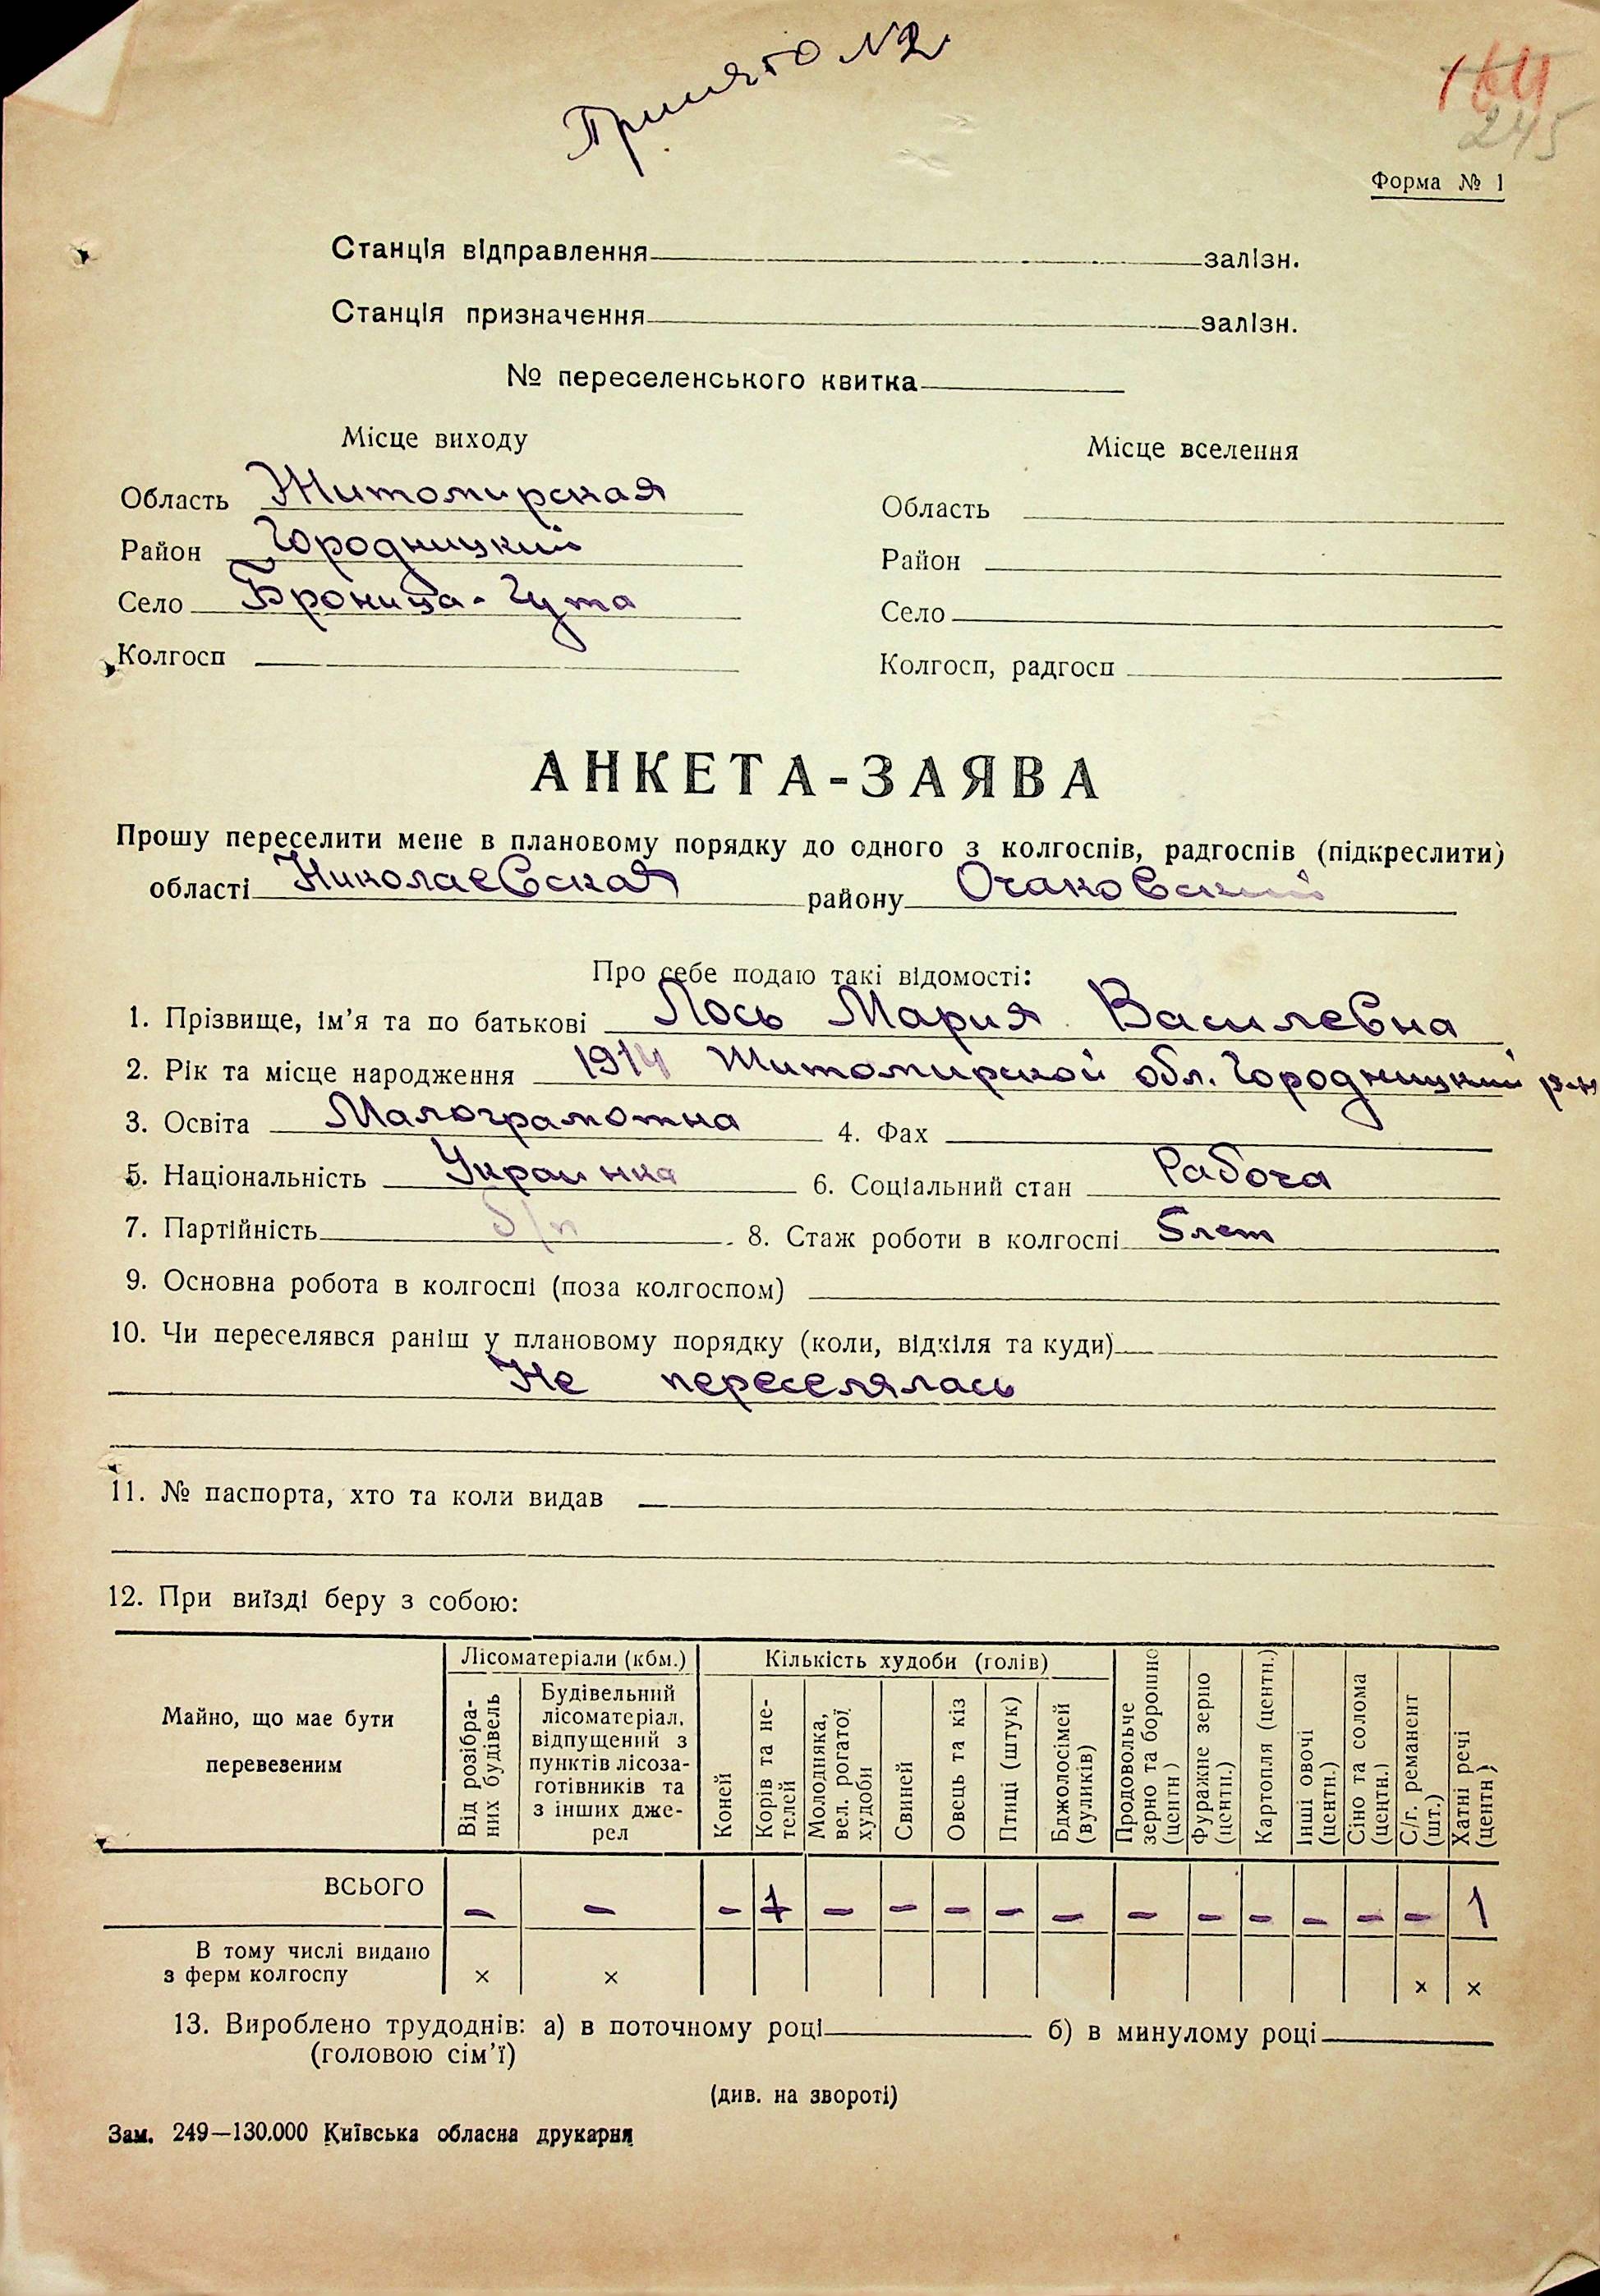 Принято N2
164
245
Форма № 1
Станція відправлення залізн.
Станція призначення залізн.
№ переселенського квитка
Місце виходу Місце вселення
Область Житомирская Область
Район Городницкий Район
Село Броница-Гута Село
Колгосп Колгосп, радгосп
АНКЕТА-ЗАЯВА
Прошу переселити мене в плановому порядку до одного з колгоспів, радгоспів (підкреслити)
області Николаевская району Очаковский
Про себе подаю такі відомості:
1. Прізвище, ім’я та по батькові Лось Мария Василевна
2. Рік та місце народження 1914 Житомирской обл. Городницкий р-н
3. Освіта Малограмотна 4. Фах
5. Національність Украинка 6. Соціальний стан Рабоча
7. Партійність б/п 8. Стаж роботи в колгоспі 5 лет
9. Основна робота в колгоспі (поза колгоспом)
10. Чи переселявся раніш у плановому порядку (коли, відкіля та куди)
Не переселялась
11. № паспорта, хто та коли видав
12. При виїзді беру з собою:
Майно, що має бути перевезеним
Лісоматеріали (кбм.)
Від розібраних будівель
Будівельний лісоматеріал, відпущений з пунктів лісозаготівників та з інших джерел
Кількість худоби (голів)
Коней
Корів та нетелей
Молодняка, вел. рогатої худоби
Свиней
Овець та кіз
Птиці (штук)
Бджолосімей (вуликів)
Продовольче зерно та борошно (центн)
Фуражне зерно (центн.)
Картопля (центн.)
Інші овочі (центн.)
Сіно та солома (центн.)
С/г. реманент (шт.)
Хатні речі (центн)
ВСЬОГО – – – 1 – – – – – – – – – – – 1
В тому числі видано
з ферм колгоспу × × × ×
13. Вироблено трудоднів: а) в поточному році б) в минулому році
(головою сім’ї)
(див. на звороті)
Зам. 249—130.000 Київська обласна друкарня